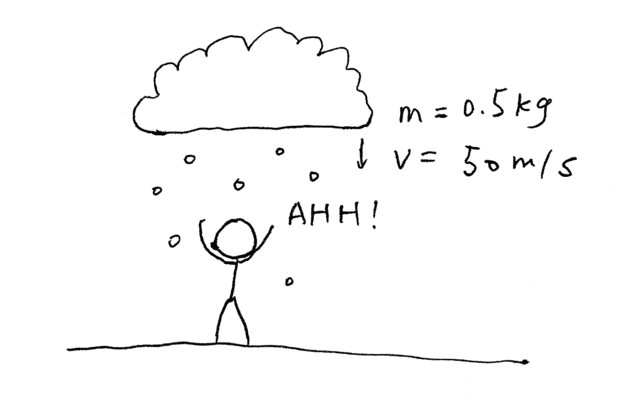 m = 0.5kg
↓ v = 50m/s
AHH!